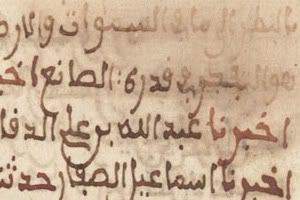 بالنظر الى ما فى السموات والارض
فى قدرة الصانع اخبر
اخبرنا عبدالله بن على الدقا
اخبرنا اسماعيل الصفار حدثنا